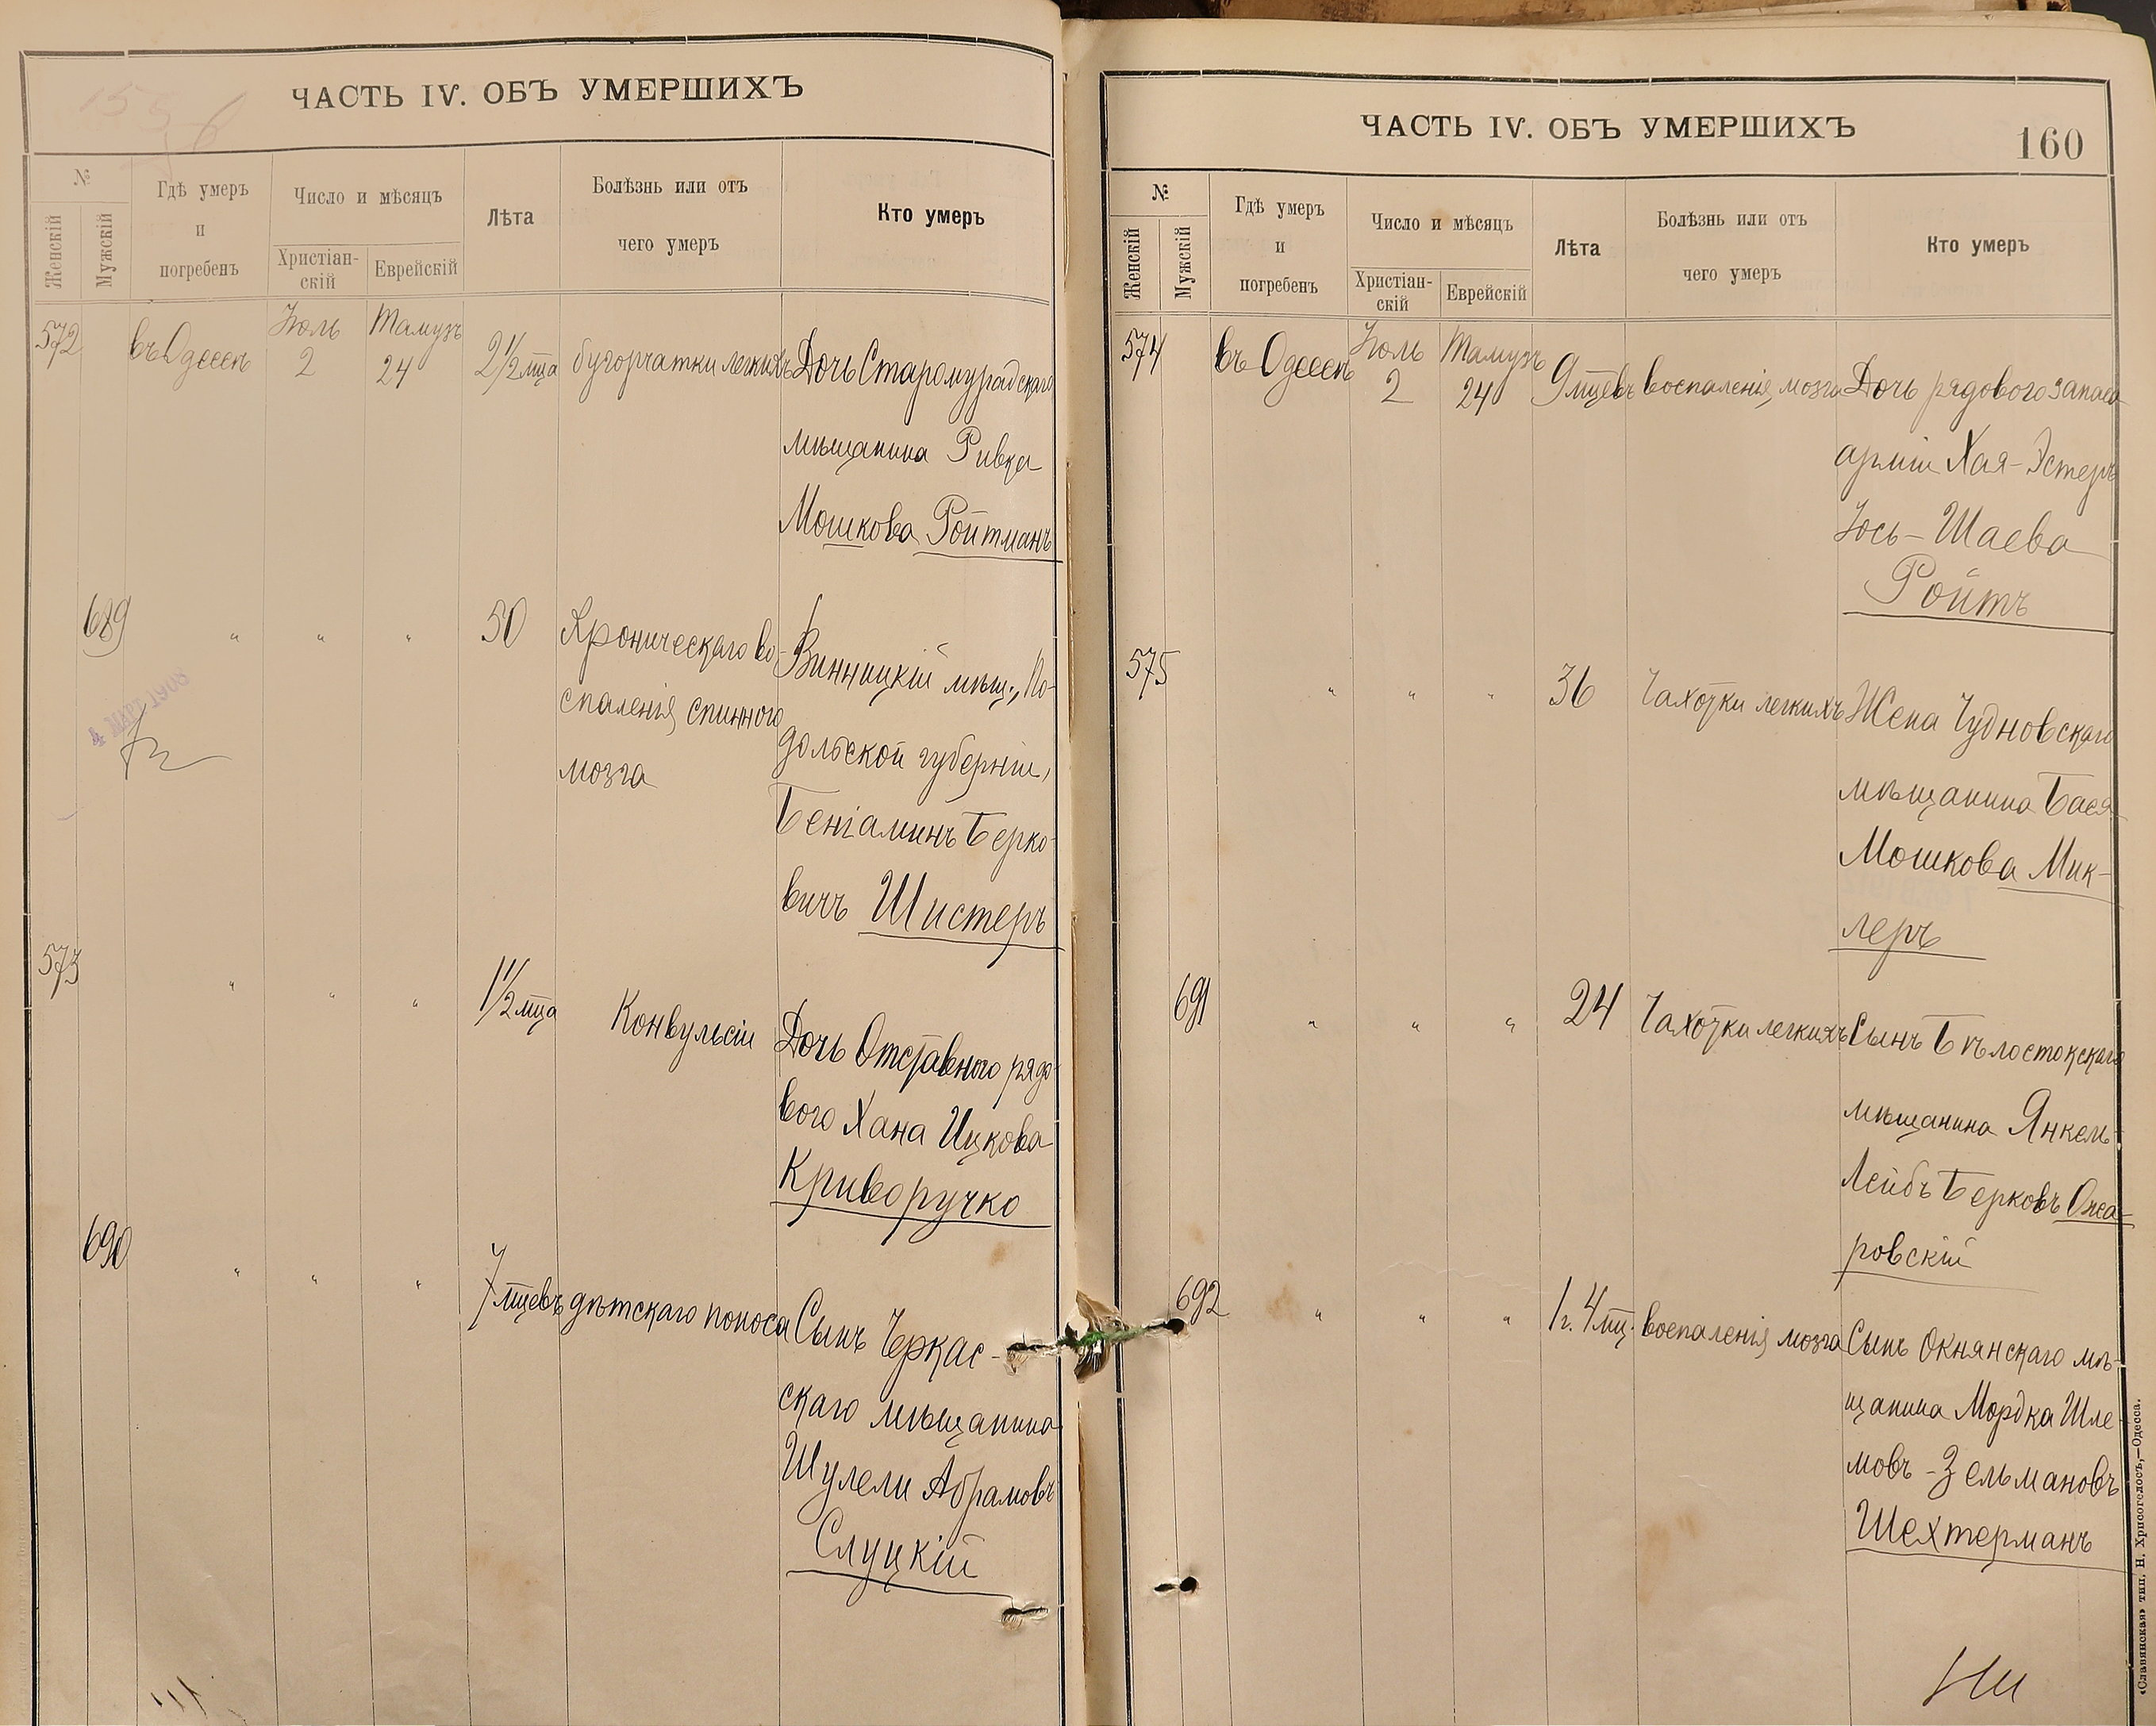 ЧАСТЬ IV. ОБЪ УМЕРШИХЪ
№
Женскій
Мужскій
Гдѣ умеръ
и
погребенъ
Число и мѣсяцъ
Христіан-
скій
Еврейскій
Лѣта
Болѣзнь или отъ
чего умеръ
Кто умеръ
572 въ Одессѣ Іюль 2 Тамузъ 24 2 1/2 мца бугорчатки легкихъ Дочь Старомурадскаго
мѣщанина Ривка
Мошкова Ройтманъ
689 " " " 50 Хроническаго во- Винницкій мѣщ., По-
спаленія спинного дольской губерніи,
мозга Беніаминъ Берко-
вичъ Шистеръ
4 МАР 1908
573 " " " 1 1/2 мца Конвульсіи Дочь Отставного рядо-
вого Хана Ицкова
Криворучко
690 " " " 7 мцевъ дѣтскаго поноса Сынъ Черкас-
скаго мѣщанина
Шулели Абрамовъ
Слуцкій
ЧАСТЬ IV. ОБЪ УМЕРШИХЪ
160
№
Женскій
Мужскій
Гдѣ умеръ
и
погребенъ
Число и мѣсяцъ
Христіан-
скій
Еврейскій
Лѣта
Болѣзнь или отъ
чего умеръ
Кто умеръ
574 въ Одессѣ Іюль 2 Тамузъ 24 9 мцевъ воспаленія мозга Дочь рядового запаса
арміи Хая-Эстеръ
Іось-Шаева
Ройтъ
575 " " " 36 Чахотки легкихъ Жена Чудновскаго
мѣщанина Бася
Мошкова Мик-
леръ
691 " " " 24 Чахотки легкихъ Сынъ Бѣлостокскаго
мѣщанина Янкель-
Лейбъ Берковъ Ожа-
ровскій
692 " " " 1 г. 4 мц. воспаленія мозга Сынъ Окнянскаго мѣ-
щанина Мордка Шле-
мовъ-Зельмановъ
Шехтерманъ
«Славянская» тип. Н. Хрисогелосъ,—Одесса.